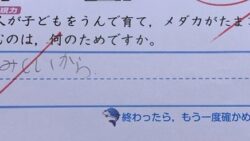 現力
人が子どもをうんで育て，メダカがたま
むのは，何のためですか。
みにいから
終わったら，もう一度確かめ